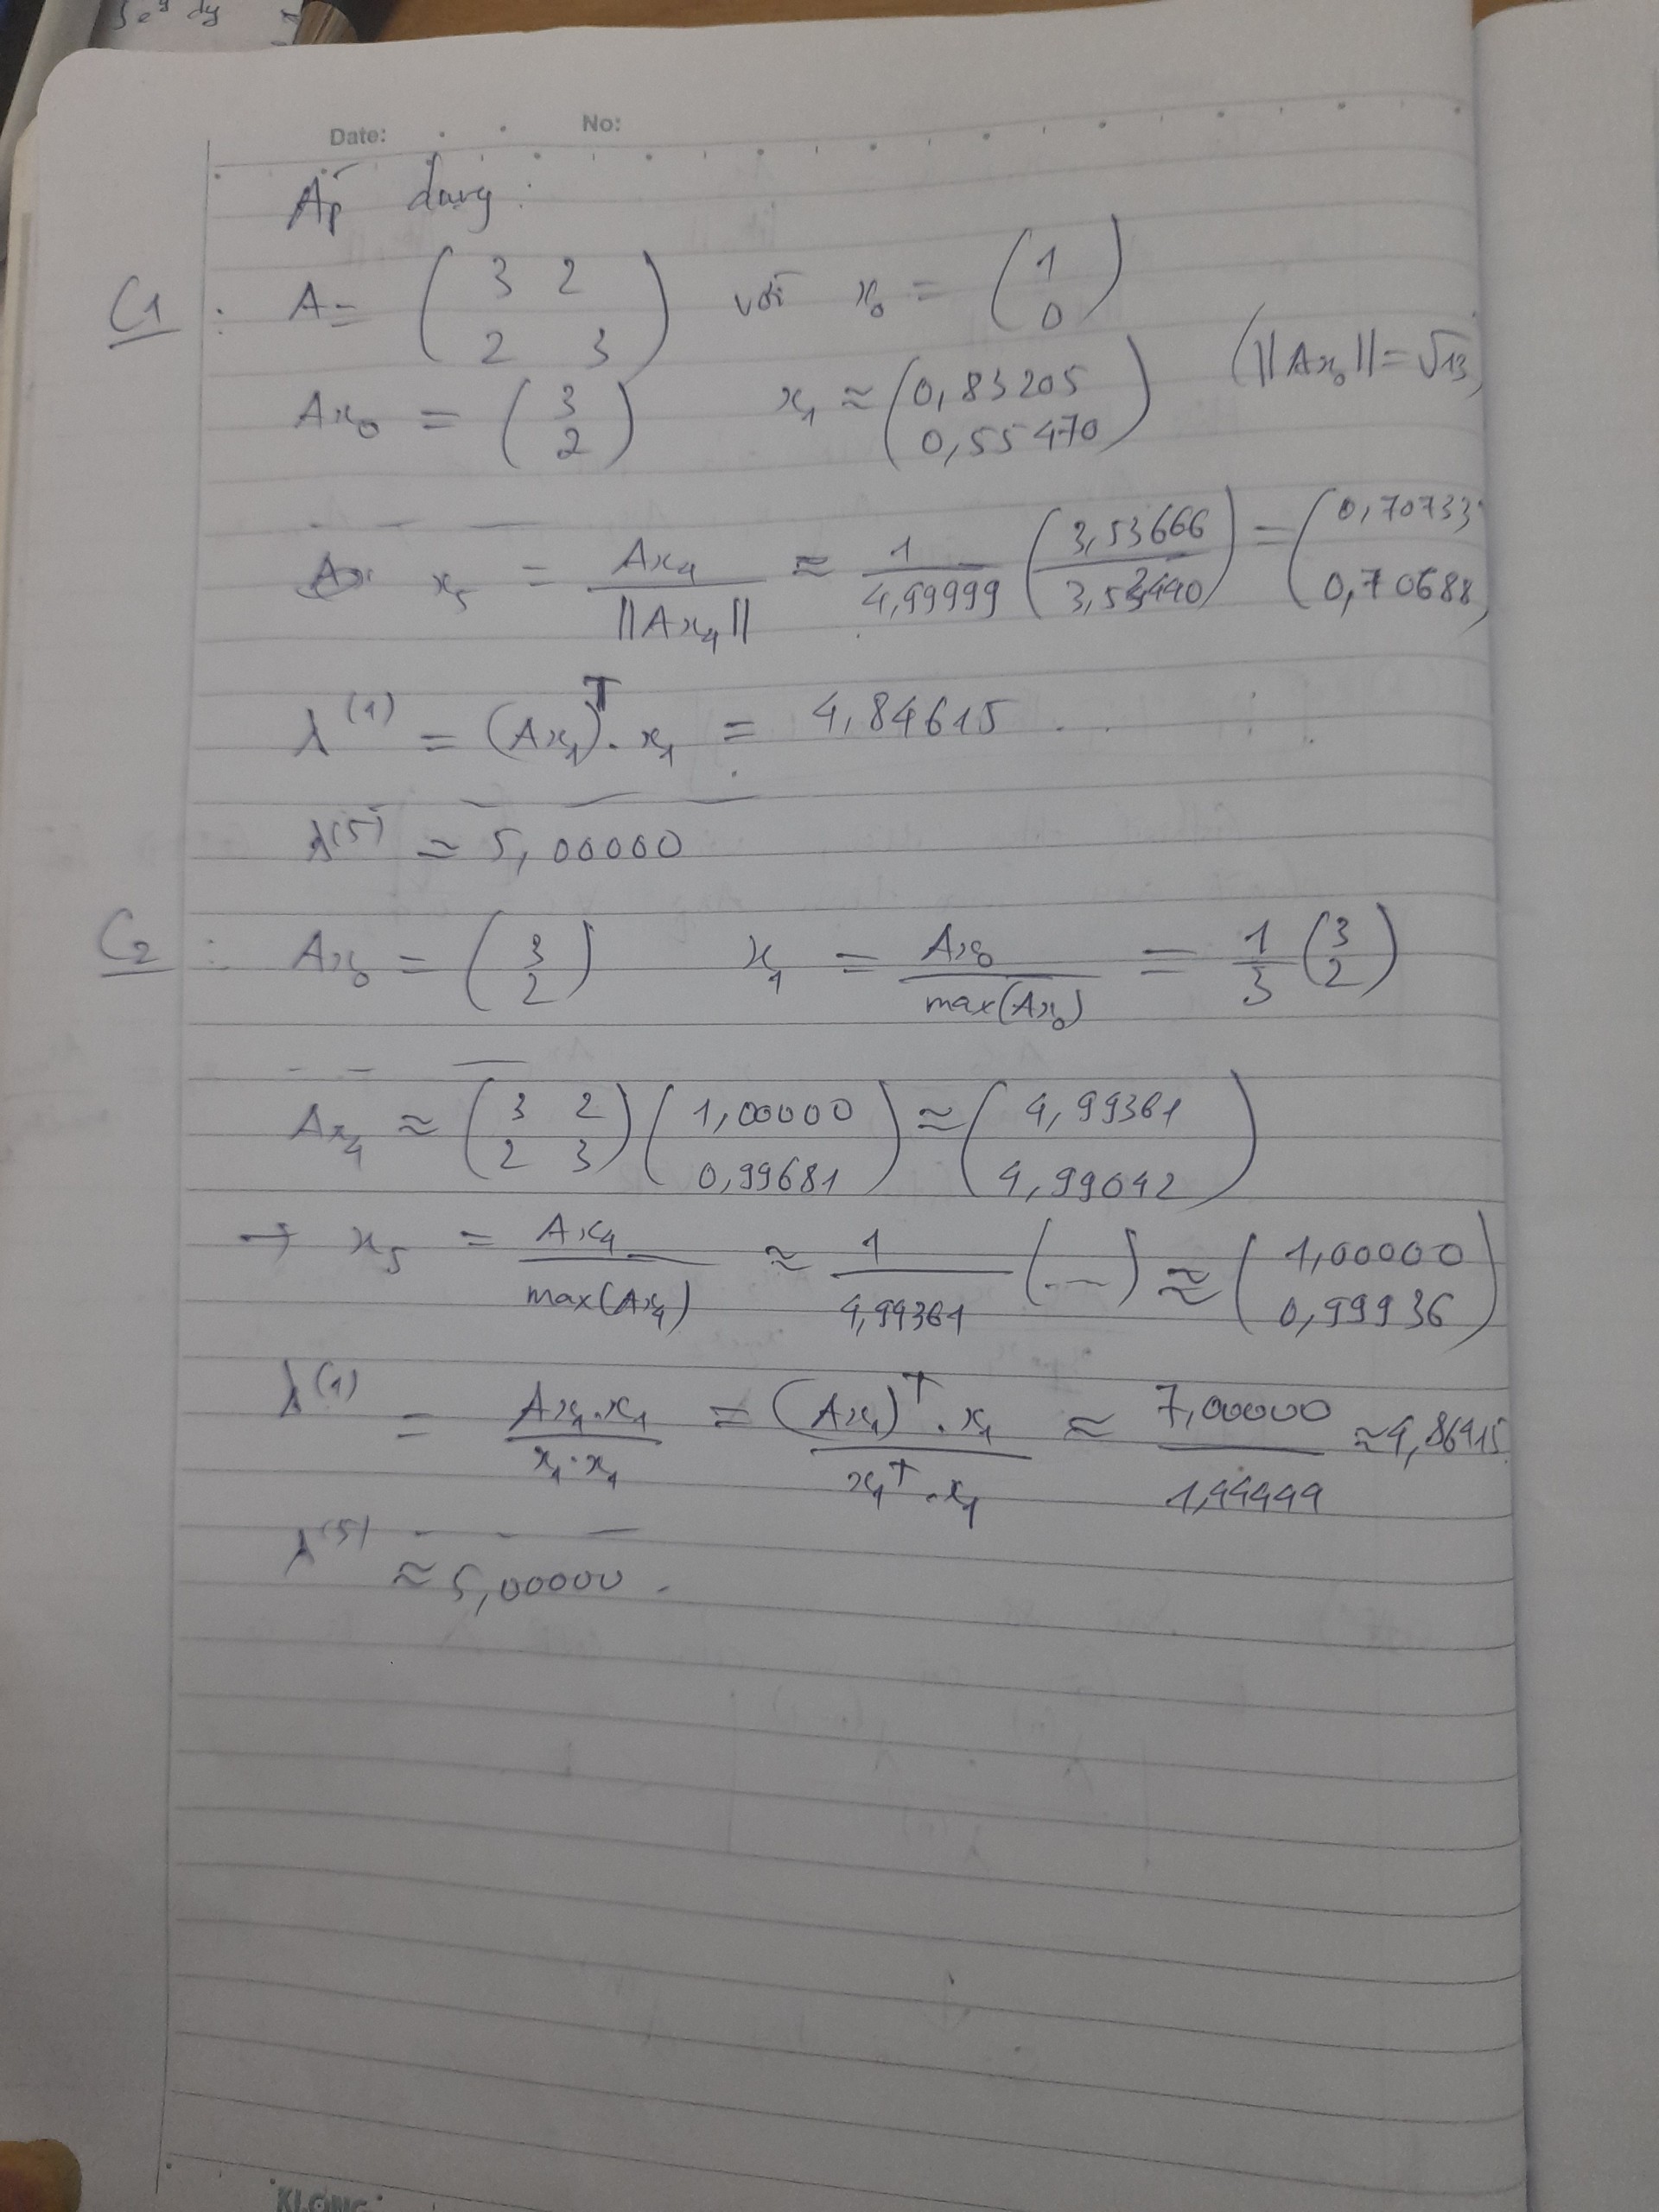 ∫e^y dy
Date: No:
Áp dụng:
C1: A = (3 2; 2 3) với x₀ = (1; 0)
Ax₀ = (3; 2) x₁ ≈ (0,83205; 0,55470) (||Ax₀|| = √13)
x₅ = Ax₄/||Ax₄|| ≈ 1/4,99999 (3,53666; 3,53440) = (0,70733; 0,70688)
λ⁽¹⁾ = (Ax₁)ᵀ. x₁ = 4,84615
λ⁽⁵⁾ ≈ 5,00000
C2: Ax₀ = (3; 2) x₁ = Ax₀/max(Ax₀) = 1/3 (3; 2)
Ax₄ ≈ (3 2; 2 3)(1,00000; 0,99681) ≈ (4,99361; 4,99042)
→ x₅ = Ax₄/max(Ax₄) ≈ 1/4,99361 (...) ≈ (1,00000; 0,99936)
λ⁽¹⁾ = Ax₁.x₁/x₁.x₁ = (Ax₁)ᵀ.x₁/x₁ᵀ.x₁ ≈ 7,00000/1,44444 ≈ 4,86415
λ⁽⁵⁾ ≈ 5,00000.
KLONG